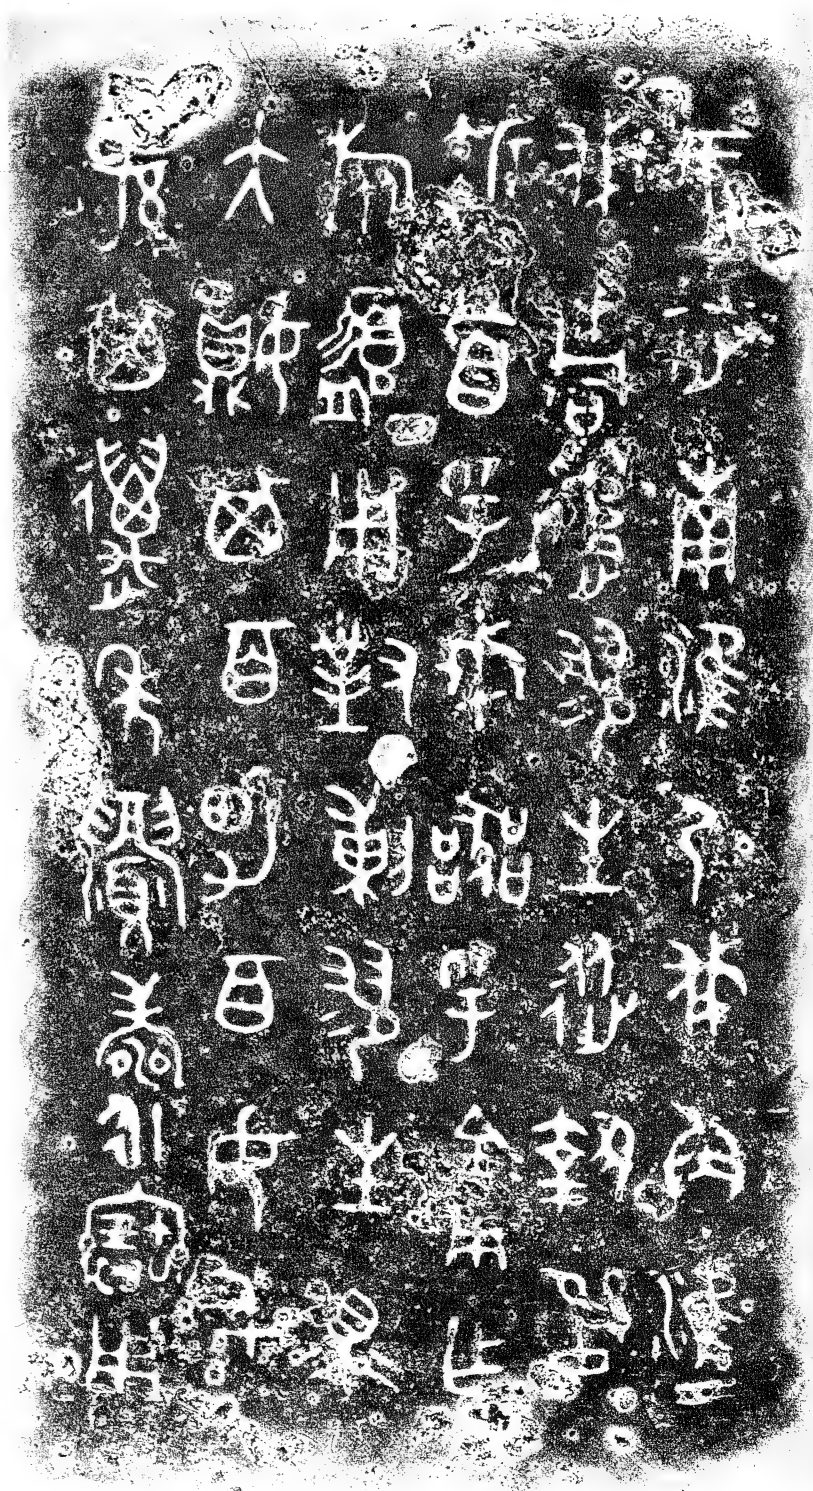 王征南淮尸伐角津
伐桐遹翏生從執訊
折首孚戎器孚金用乍
旅盨用對剌翏生眔
大妘其百男百女千孫
其邁年眉壽永寶用